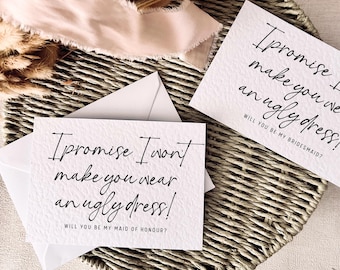 I promise I won't
make you wear
an ugly dress!
WILL YOU BE MY MAID OF HONOUR?
I promise I
make you wear
an ugly dress!
WILL YOU BE MY BRIDESMAID?